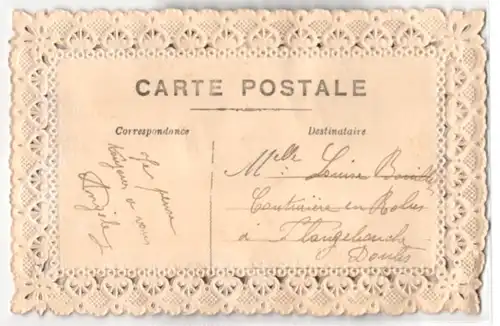 CARTE POSTALE
Correspondance
Destinataire
Je pense
toujours à vous
Angèle
Melle Louise
Couturière en Robes
à
Doubs